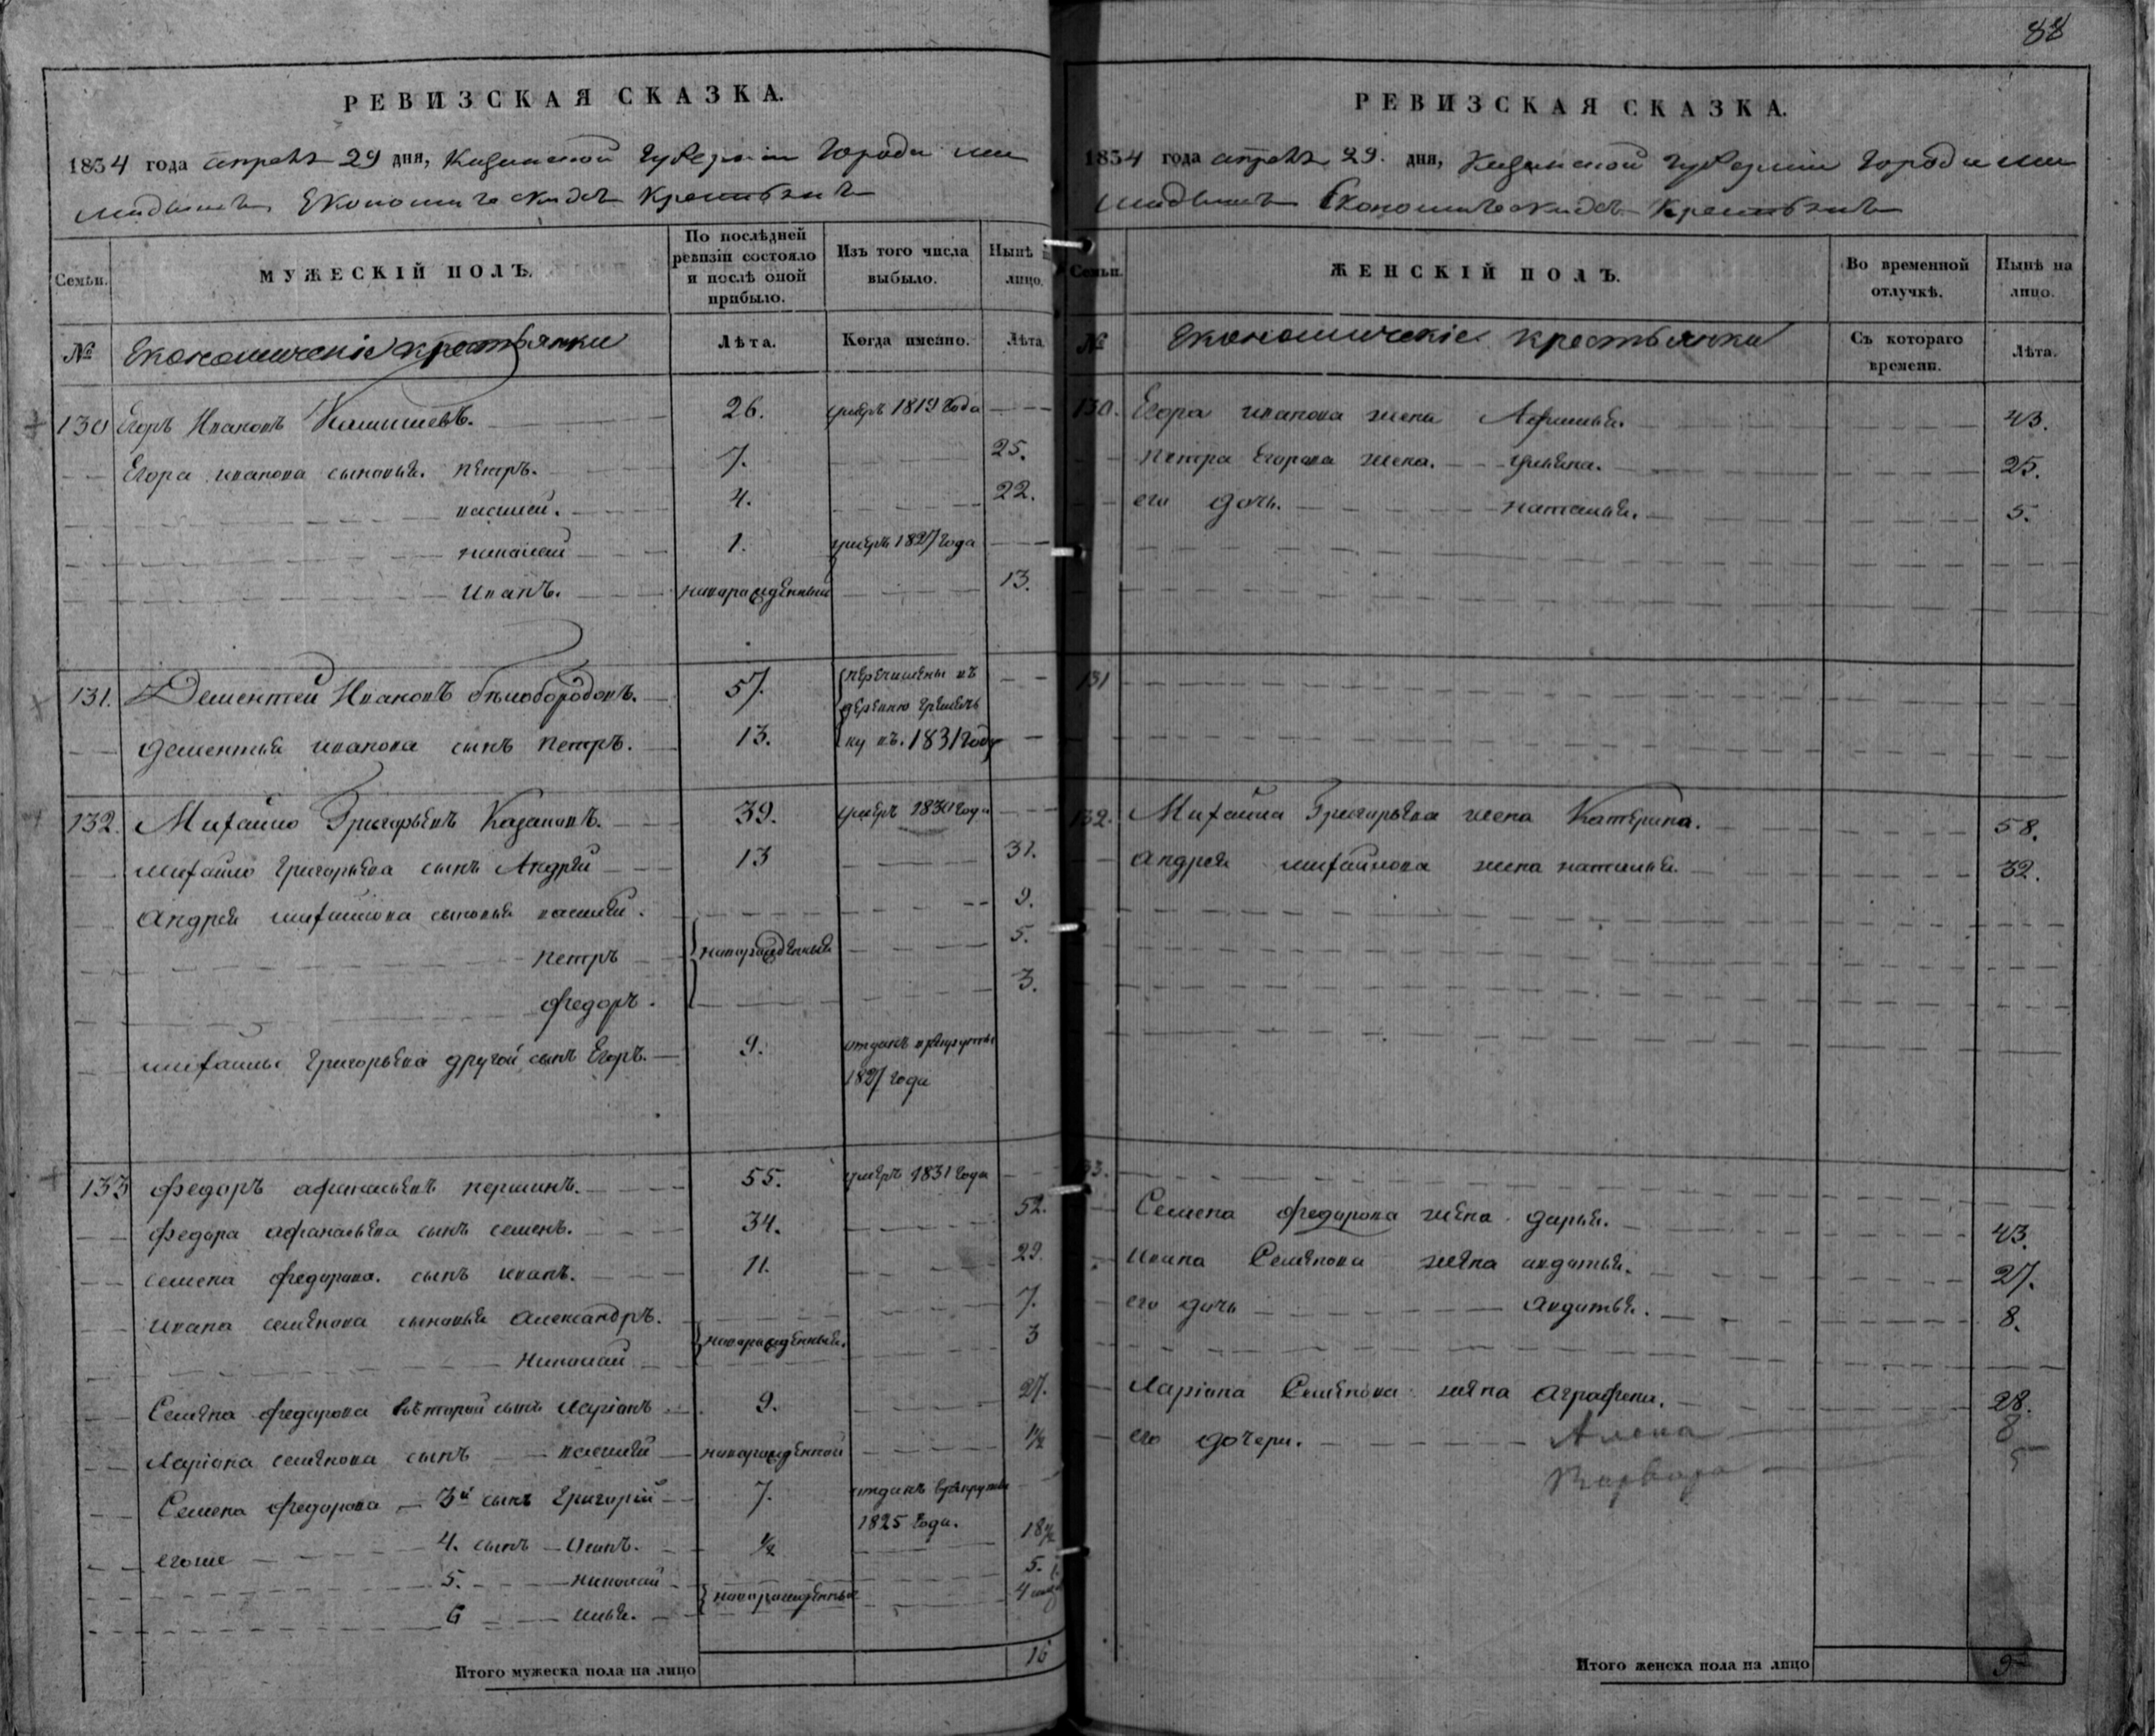 88
РЕВИЗСКАЯ СКАЗКА.
1834 года апреля 29 дня, Казанской Губернiи Города ма
мадышъ Економическихъ Крестьянъ
Семьи.
МУЖЕСКIЙ ПОЛЪ.
По послѣдней ревизiи состояло и послѣ оной прибыло.
Изъ того числа выбыло.
Нынѣ на лицо.
№
Економическiе крестьянки
Лѣта.
Когда именно.
Лѣта
130 Егоръ Ивановъ 26. умеръ 1819 Года
Егора иванова сыновья. Петръ. 7. 25.
василей. 4. 22.
николай 1. умеръ 1827 Года
Иванъ. новорожденный 13.
131. Дементей Ивановъ бѣлобородовъ. 57. перечислены въ
деревню
дементья иванова сынъ Петръ. 13. въ. 1831 Году
132. Михайло Григорьевъ Казаковъ. 39. умеръ 1830 года
михайло григорьева сынъ Андрей 13 31.
Андрея михайлова сыновья василей. 9.
Петръ новорожденныя 5.
Федоръ. 3.
михайлы григорьева другой сынъ Егоръ. 9. отданъ в рекруты
1827 года
133 Федоръ афанасьевъ першинъ. 55. умеръ 1831 Года
Федора афанасьева сынъ семенъ. 34. 52.
семена федорова. сынъ иванъ. 11. 29.
ивана семенова сыновья Александръ. 7.
Николай новорожденныя. 3
Семена федорова второй сынъ Ларiонъ 9. 27.
Ларiона семенова сынъ василей новорожденной 1/2
Семена федорова 3й сынъ Григорiй 7. отданъ в рекруты
1825 Года.
егоже 4. сынъ Иванъ. 1/2 18 1/2
5. николай новорожденныя 5.
6 илья. 4
Итого мужеска пола на лицо 16
РЕВИЗСКАЯ СКАЗКА.
1834 года апреля 29. дня, Казанской губернiи города ма
мадышъ Економическихъ Крестьянъ
Семьи.
ЖЕНСКIЙ ПОЛЪ.
Во временной отлучкѣ.
Нынѣ на лицо.
№
Економическiе крестьянки
Съ котораго времени.
Лѣта.
130. Егора иванова жена Афимья. 43.
Петра Егорова жена. ульяна. 25.
его дочь. наталья. 5.
131
132. Михайла Григорьева жена Катерина. 58.
Андрея михайлова жена наталья. 32.
133.
Семена федорова жена дарья. 43.
Ивана Семенова жена авдотья. 27.
его дочь Авдотья. 8.
Ларiона Семенова жена Аграфена. 28.
его дочери. Алена 8
Варвара 5
Итого женска пола на лицо 9